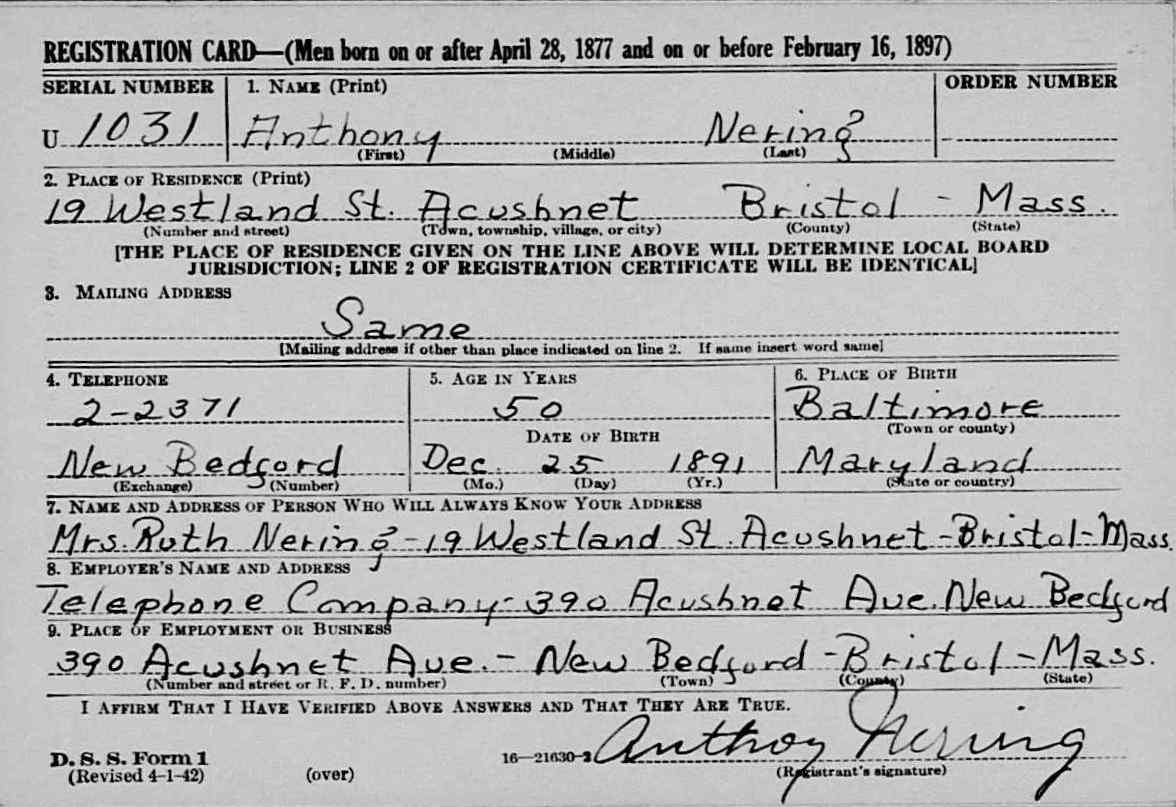 REGISTRATION CARD—(Men born on or after April 28, 1877 and on or before February 16, 1897)
SERIAL NUMBER 1. NAME (Print) ORDER NUMBER
U 1031 Anthony Nering
(First) (Middle) (Last)
2. PLACE OF RESIDENCE (Print)
19 Westland St. Acushnet Bristol - Mass.
(Number and street) (Town, township, village, or city) (County) (State)
[THE PLACE OF RESIDENCE GIVEN ON THE LINE ABOVE WILL DETERMINE LOCAL BOARD
JURISDICTION; LINE 2 OF REGISTRATION CERTIFICATE WILL BE IDENTICAL]
3. MAILING ADDRESS
Same
[Mailing address if other than place indicated on line 2. If same insert word same]
4. TELEPHONE 5. AGE IN YEARS 6. PLACE OF BIRTH
2-2371 50 Baltimore
DATE OF BIRTH (Town or county)
New Bedford Dec. 25 1891 Maryland
(Exchange) (Number) (Mo.) (Day) (Yr.) (State or country)
7. NAME AND ADDRESS OF PERSON WHO WILL ALWAYS KNOW YOUR ADDRESS
Mrs. Ruth Nering - 19 Westland St. Acushnet - Bristol - Mass
8. EMPLOYER'S NAME AND ADDRESS
Telephone Company - 390 Acushnet Ave. New Bedford
9. PLACE OF EMPLOYMENT OR BUSINESS
390 Acushnet Ave. - New Bedford - Bristol - Mass.
(Number and street or R. F. D. number) (Town) (County) (State)
I AFFIRM THAT I HAVE VERIFIED ABOVE ANSWERS AND THAT THEY ARE TRUE.
D. S. S. Form 1 16—21630-2 Anthoy Nering
(Revised 4-1-42) (over) (Registrant's signature)